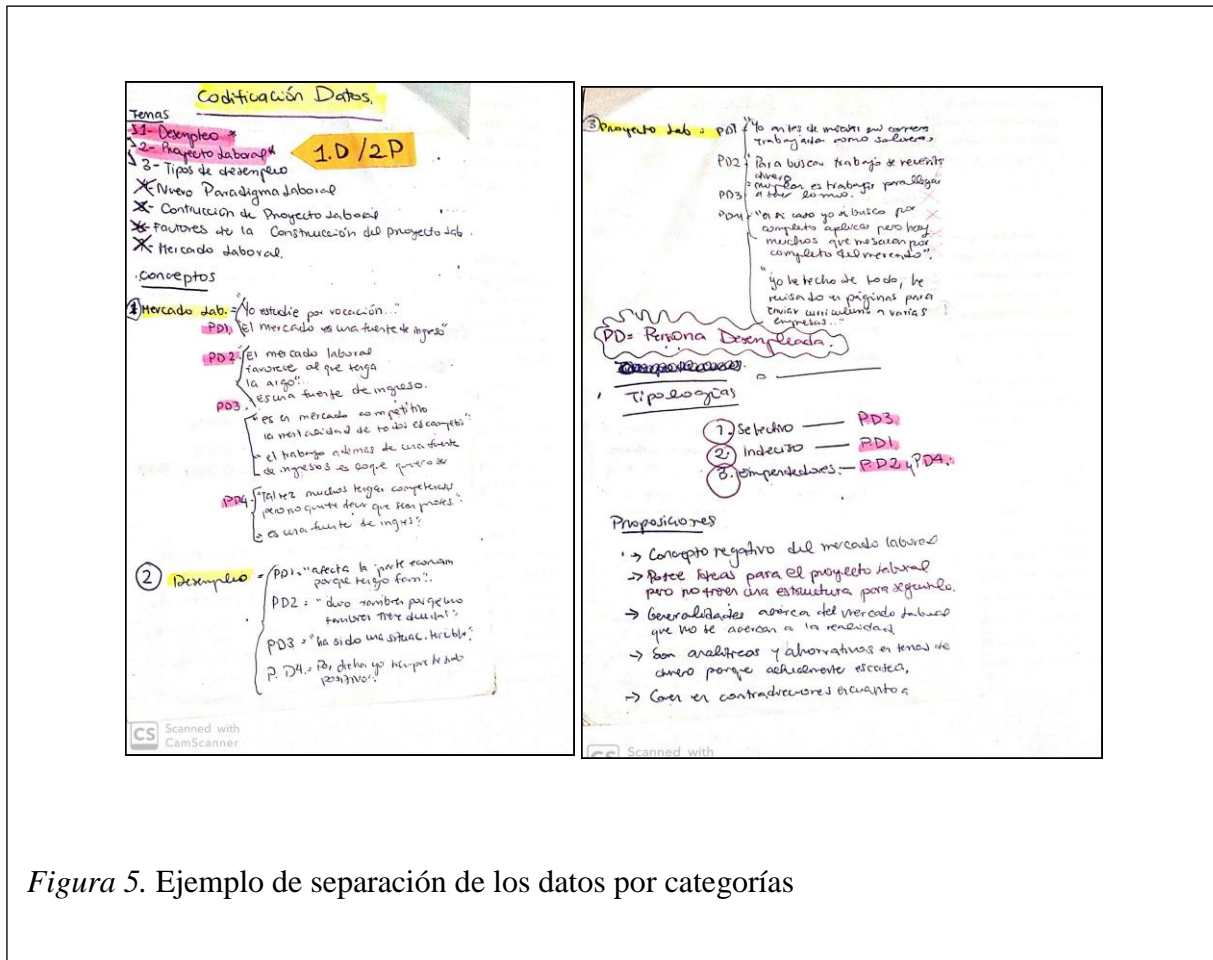 Codificación Datos.
Temas
1- Desempleo *
2- Proyecto Laboral*
1.D/2P
3- Tipos de desempleo
Nuevo Paradigma Laboral
Contrucción de Proyecto Laboral
Factores de la Construcción del proyecto Lab.
Mercado Laboral.
conceptos
1 Mercado Lab. = "Yo estudie por vocación..."
PD1, "El mercado es una fuente de ingreso"
PD2. "El mercado laboral
favorece al que tenga
la argo"..
Es una fuente de ingreso.
PD3.
"es un mercado competitivo
la mentalidad de todos es competi"
el trabajo además de una fuente
de ingresos es lo que quiero ser
PD4. "Tal vez muchos tengan competencias
pero no quiere decir que sean profes."
es una fuente de ingres"
2 Desempleo = PD1. "afecta la parte econom
porque tengo fam".
PD2 = "duro también porque uno
también
PD3 = "ha sido una situac. terrible"
P.D4. = Por dicha yo siempre he sido
positivo".
CS Scanned with
CamScanner
3 Proyecto Lab = PD1 "Yo antes de mi carrera
trabajaba como salonero"
PD2 "Para buscar trabajo se necesita
dinero
PD3 es trabajar para llegar
a tener lo mío.
PD4 "en mi caso yo si busco por
completo aplicar pero hay
muchos que no salen por
completo del mercado".
"yo he hecho de todo, he
revisado en páginas para
enviar curriculums a varias
empresas..."
PD= Persona Desempleada.
Tipologías
1. Selectivo — PD3
2. indeciso — PD1
3. emprendedores — PD2 y PD4.
Proposiciones
→ Concepto negativo del mercado laboral
→ Posee ideas para el proyecto laboral
pero no traen una estructura para seguirlo.
→ Generalidades acerca del mercado laboral
que no se acercan a la realidad.
→ Son analíticas y ahorrativas en temas de
dinero porque actualmente escasea,
→ Caer en contradicciones en cuanto a
CS Scanned with
Figura 5. Ejemplo de separación de los datos por categorías